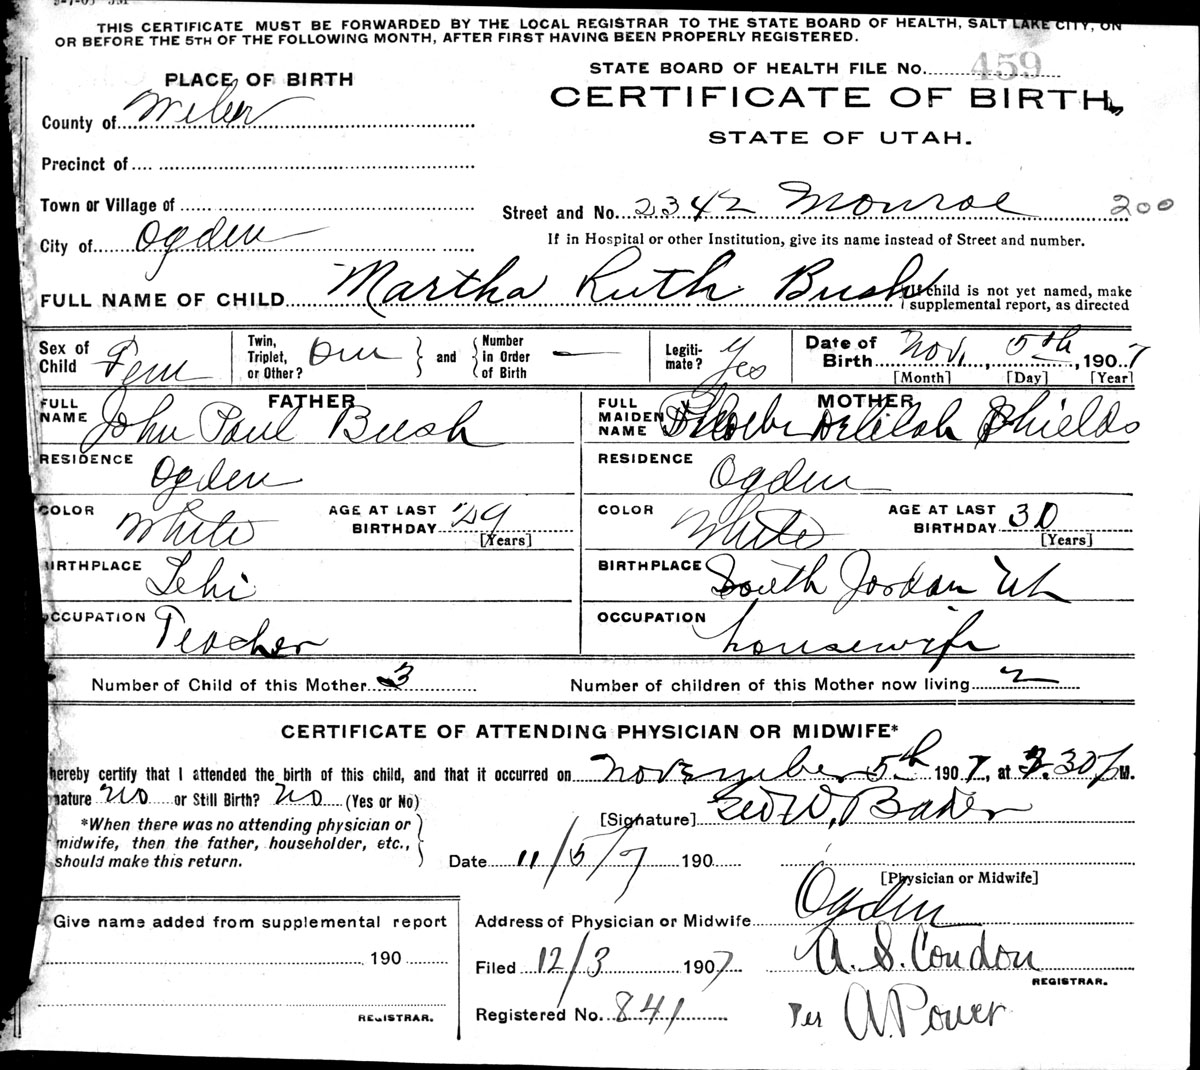 THIS CERTIFICATE MUST BE FORWARDED BY THE LOCAL REGISTRAR TO THE STATE BOARD OF HEALTH, SALT LAKE CITY, ON
OR BEFORE THE 5TH OF THE FOLLOWING MONTH, AFTER FIRST HAVING BEEN PROPERLY REGISTERED.
PLACE OF BIRTH
STATE BOARD OF HEALTH FILE No. 459
CERTIFICATE OF BIRTH
County of Weber
STATE OF UTAH.
Precinct of
Town or Village of
Street and No. 2342 Monroe 200
City of Ogden
If in Hospital or other Institution, give its name instead of Street and number.
FULL NAME OF CHILD Martha Ruth Bush
If child is not yet named, make
supplemental report, as directed
Sex of Child Fem
Twin, Triplet, or Other? One and Number in Order of Birth —
Legiti-mate? Yes
Date of Birth Nov. 5th, 1907
[Month] [Day] [Year]
FATHER
FULL NAME John Paul Bush
MOTHER
FULL MAIDEN NAME Phoebe Delilah Shields
RESIDENCE Ogden
RESIDENCE Ogden
COLOR White AGE AT LAST BIRTHDAY 29 [Years]
COLOR White AGE AT LAST BIRTHDAY 30 [Years]
BIRTHPLACE Lehi
BIRTHPLACE South Jordan Ut
OCCUPATION Teacher
OCCUPATION housewife
Number of Child of this Mother 3
Number of children of this Mother now living 2
CERTIFICATE OF ATTENDING PHYSICIAN OR MIDWIFE*
hereby certify that I attended the birth of this child, and that it occurred on November 5th 1907, at 3.30 P M.
nature No or Still Birth? No (Yes or No)
[Signature] Geo W. Baker
*When there was no attending physician or
midwife, then the father, householder, etc.,
should make this return.
Date 11/5/7 190
[Physician or Midwife]
Give name added from supplemental report
Address of Physician or Midwife Ogden
190
Filed 12/3 1907
A. S. Condon
REGISTRAR.
Registered No. 841
Per A. Power
REGISTRAR.